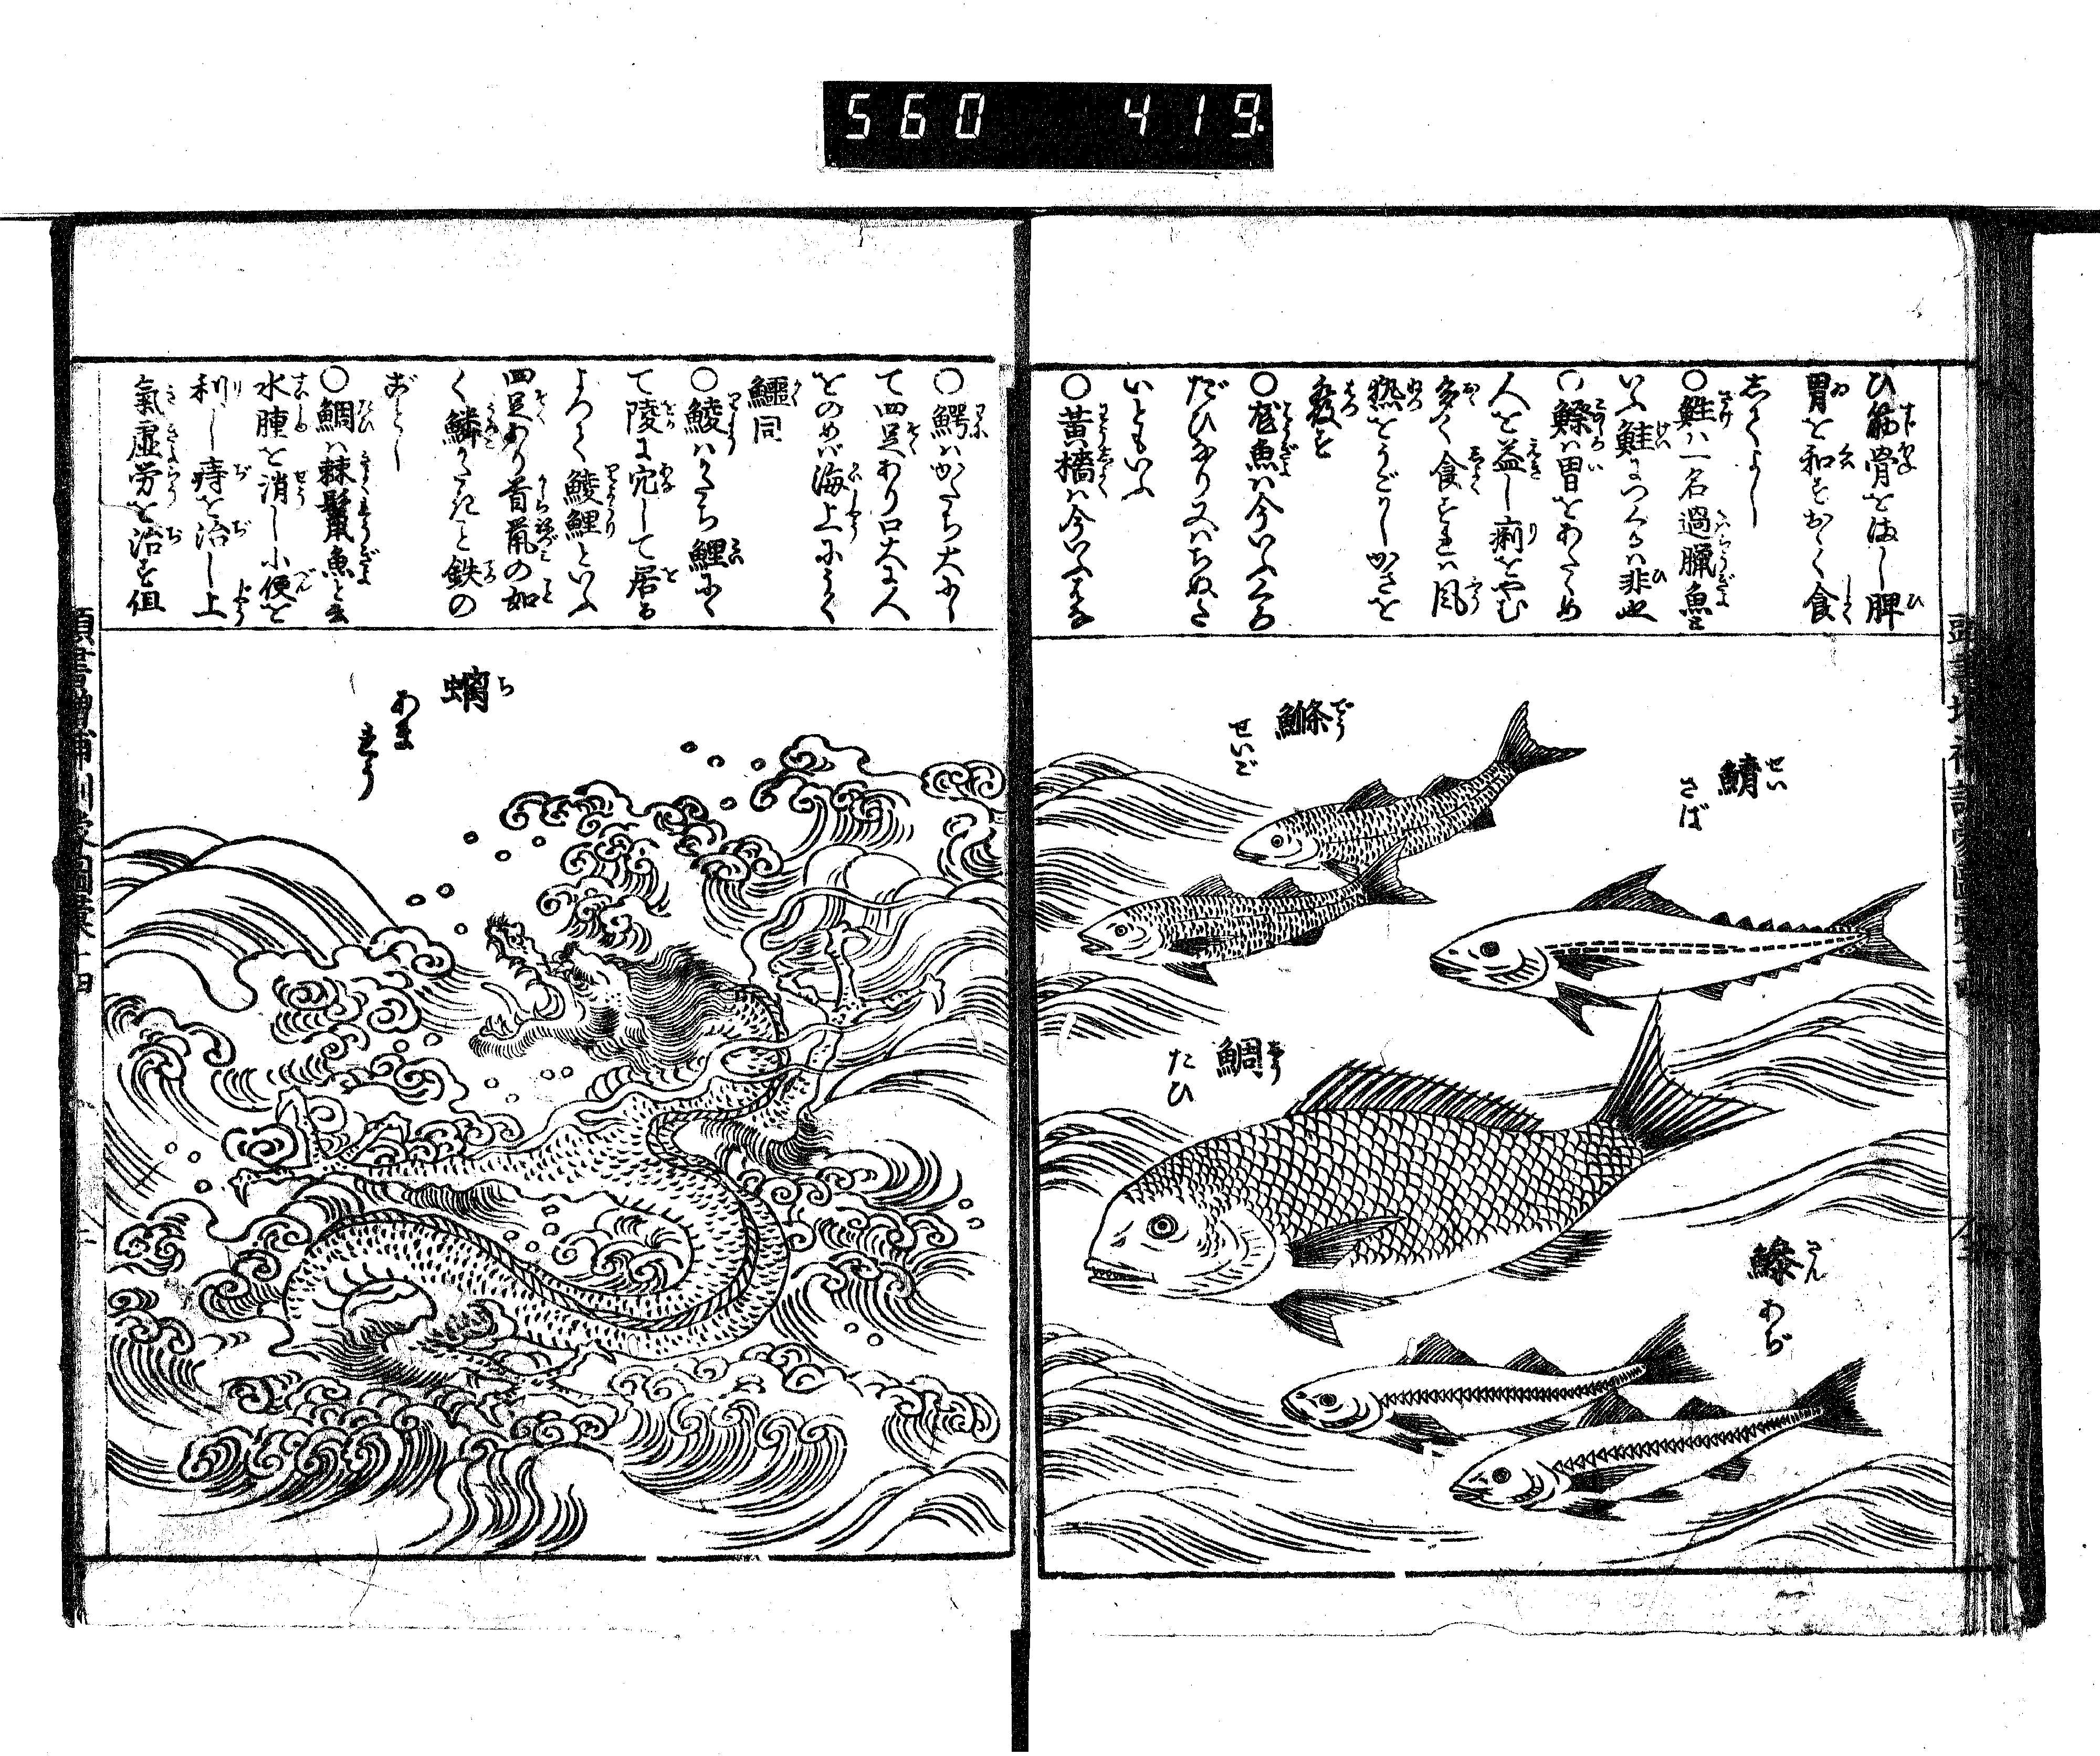 560 419.
ひ筋骨をはし脾
胃を和をおく食
志てよし
○鮏ハ一名過臘魚と
いふ鮭につくるハ非也
○鰷ハ胃をあたゝめ
人を益し痢をやむ
多く食すれハ風
熱をうごかしかさを
發を
魚ハ今いふくろ
だひなり又ハちぬだ
いともいふ
○黄檣ハ今いふはな
鯖 せい
さば
鰷 でう
せいご
鯛 てう
たひ
鰺 さん
あぢ
○鰐ハかたち大にし
て四足あり口大に人
をのめバ海上にうく
鱷同
○鯪ハかたち鯉にゝ
て陵に穴して居る
よつて鯪鯉といふ
四足あり首鼠の如
く鱗かたきこと鉄の
ごとし
○鯛ハ棘鬣魚と云
水腫を消し小便を
利し痔を治し上
氣虚労を治を但
螭 ち
あま
りう
頭書増補訓蒙圖彙十四